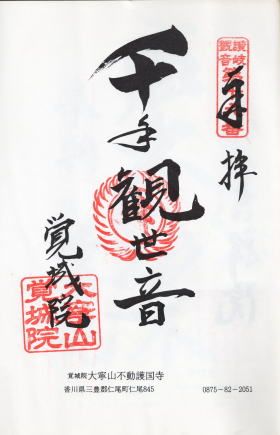 奉拝
千手観世音
覚城院
大寧山
覚城院
覚城院 大寧山不動護国寺
香川県三豊郡仁尾町仁尾845 0875-82-2051